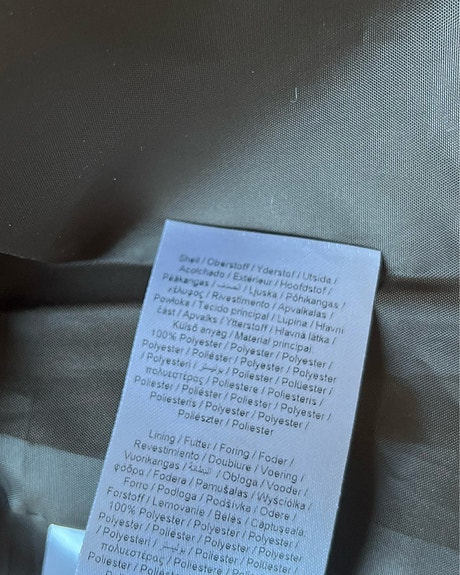 Shell / Oberstoff / Yderstof / Utsida /
Acolchado / Extérieur / Hoofdstof /
Pääkangas / الصدف / Ljuska / Põhikangas /
κέλυφος / Rivestimento / Apvalkalas /
Powłoka / Tecido principal / Lupina / Hlavní
část / Apvalks / Ytterstoff / Hlavná látka /
Külső anyag / Material principal:
100% Polyester / Polyester / Polyester /
Polyester / Poliéster / Polyester / Polyester
/ Polyesteri / بوليستر / Poliester / Polüester /
πολυεστερας / Poliestere / Poliesteris /
Poliester / Poliéster / Poliester / Polyester /
Poliesteris / Polyester / Polyester /
Poliészter / Poliester
Lining / Futter / Foring / Foder /
Revestimiento / Doublure / Voering /
Vuorikangas / البطانة / Obloga / Vooder /
φόδρα / Fodera / Pamušalas / Wyściółka /
Forro / Podloga / Podšívka / Odere /
Forstoff / Lemovanie / Bélés / Căptuşeală:
100% Polyester / Polyester / Polyester /
Polyester / Poliéster / Polyester / Polyester
/ Polyesteri / بوليستر / Poliester / Polüester /
πολυεστερας / Poliestere / Poliesteris /